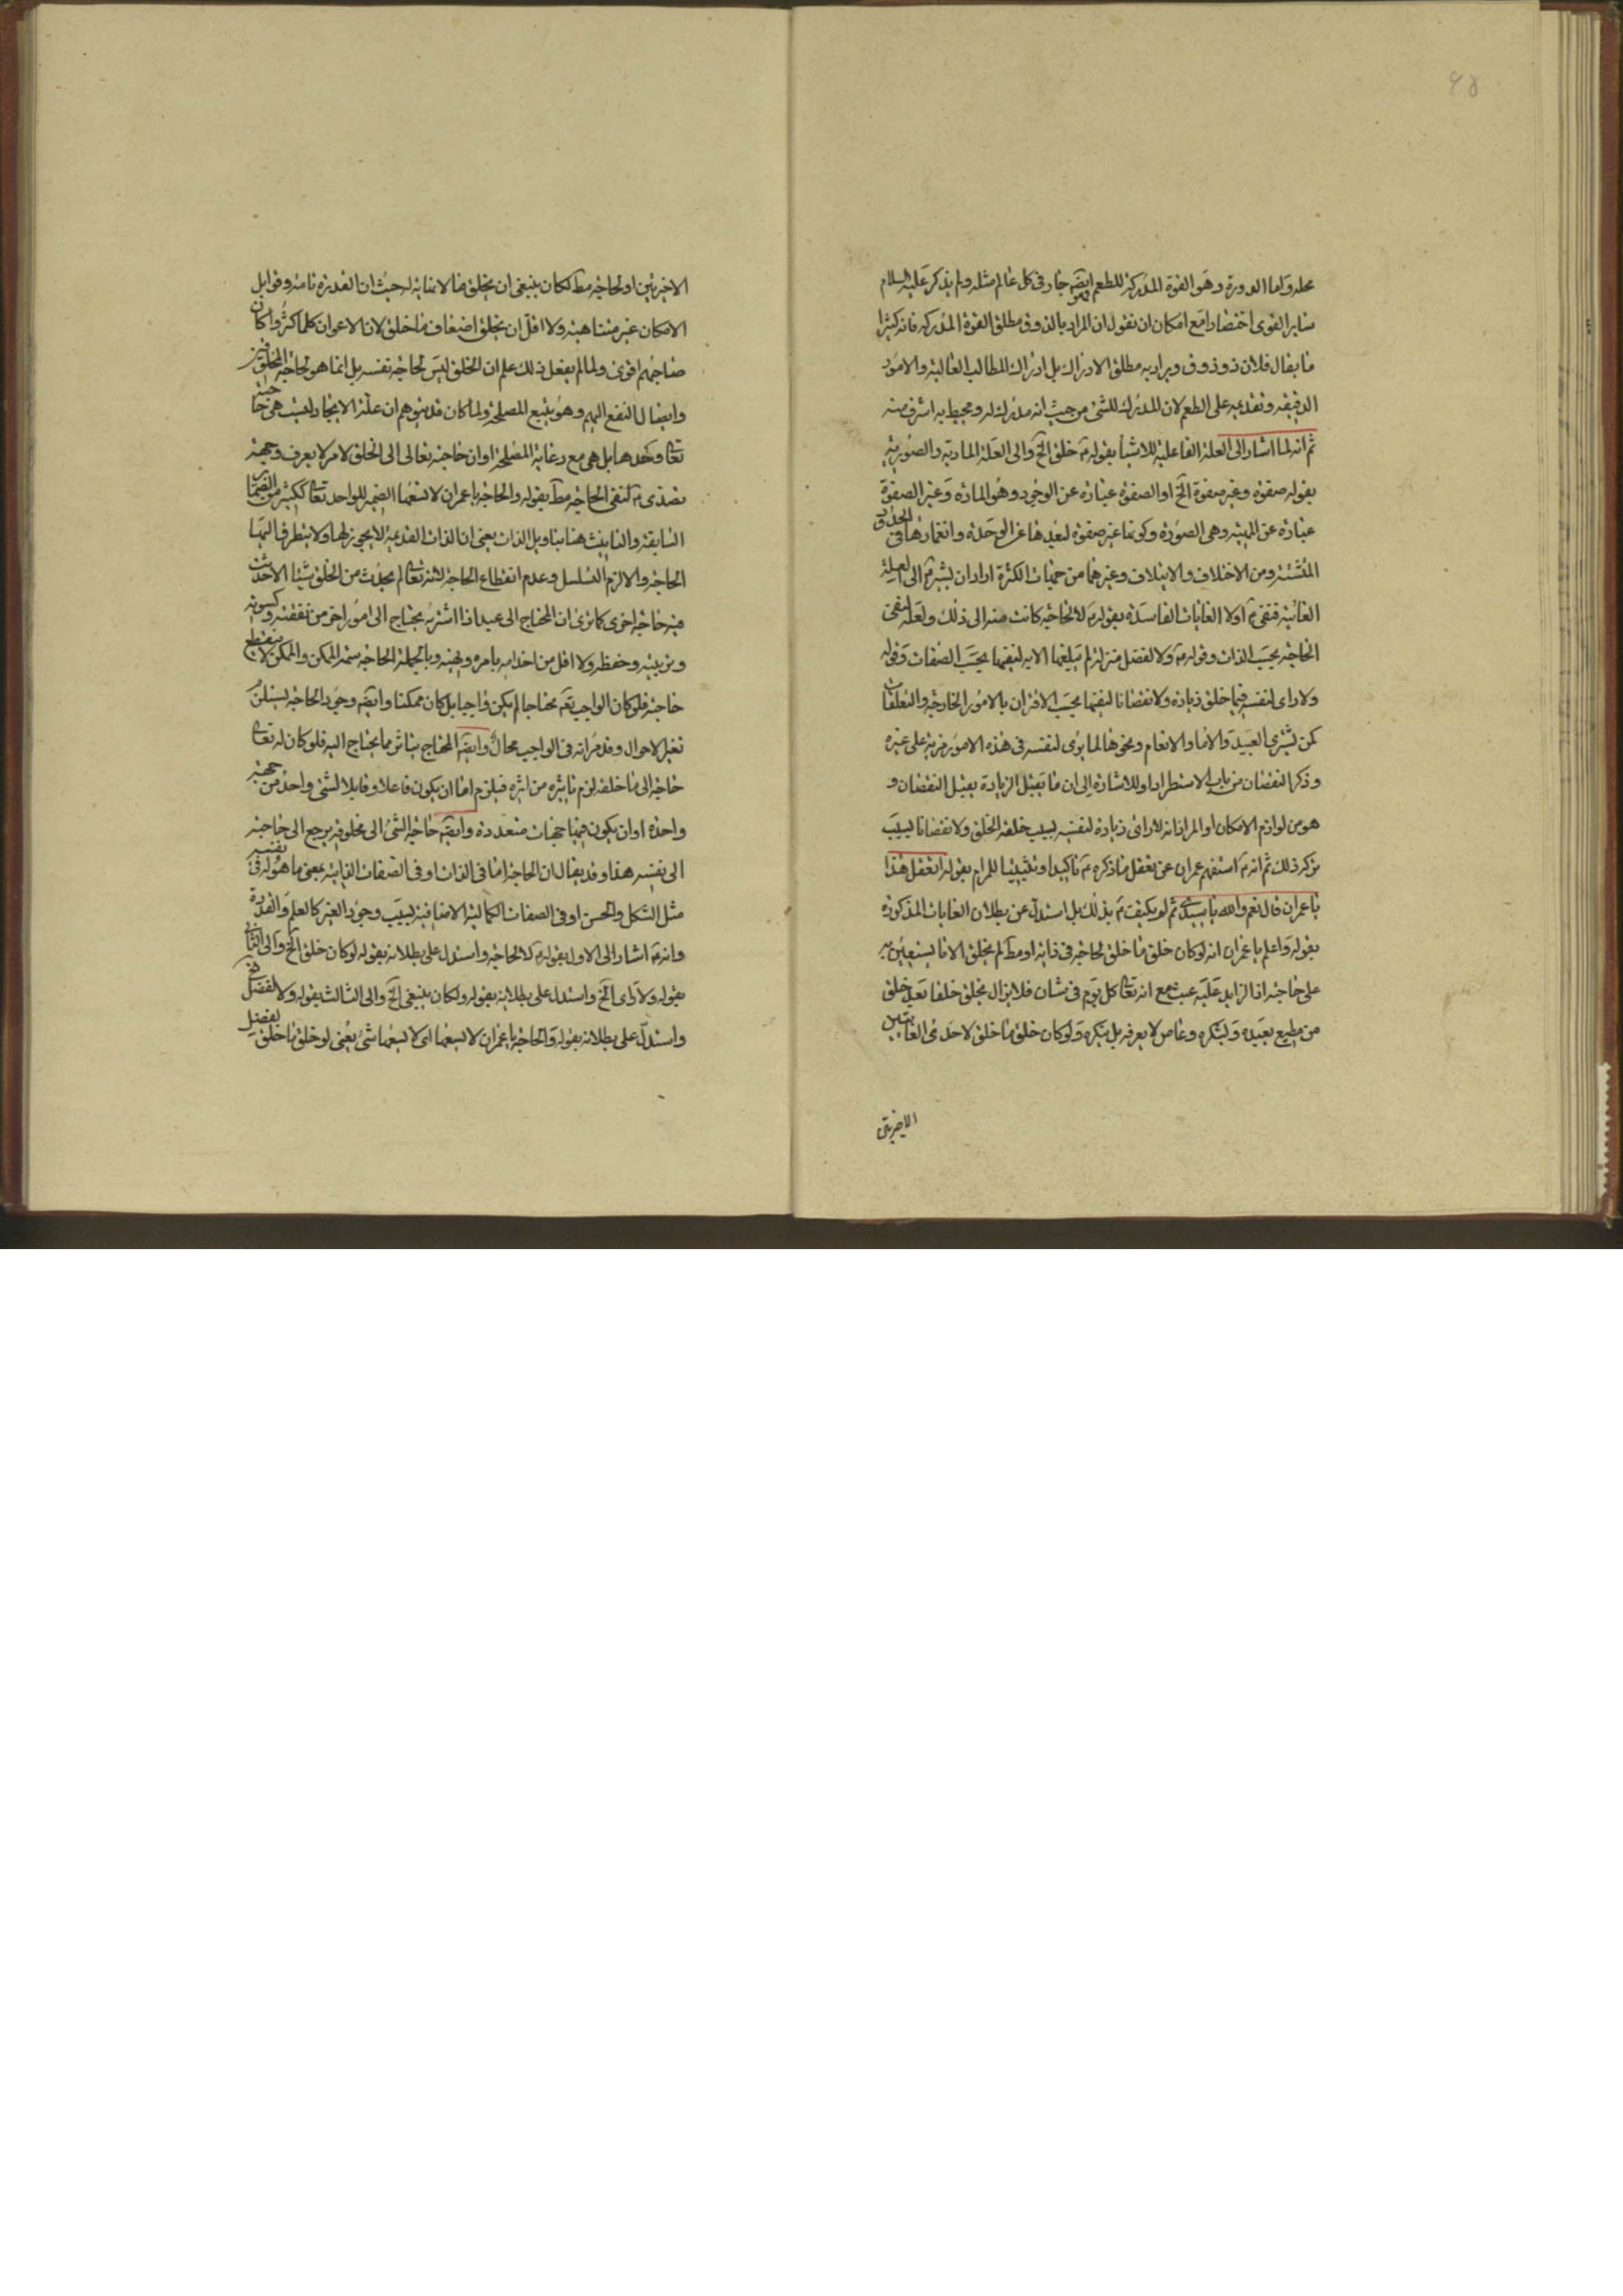 ۶۵
محله واما الدورة وهو القوة المدركة للطعم ايضم فهو جار فى كل عالم مثله ولم يذكر عليه السلام
ساير القوى اختصارا مع امكان ان نقول ان المراد بالذوق مطلق القوة المدركة فانه كثيرا
ما يقال فلان ذو ذوق ويراد به مطلق الادراك بل ادراك المطالب العالية والامور
الدقيقه وتقديمه على الطعم لان المدرك للشئ من حيث انه مدرك له ومحيط به اشرف منه
ثم انه لما اشار الى العلة الفاعلية للاشيا بقوله خلق الخ والى العلة المادية والصورية
بقوله صفوة وغير صفوة الخ او الصفوة عبارة عن الوجود وهو المادة وغير الصفوة
عبارة عن المهية وهى الصورة وكونها غير صفوة لبعدها عن الوحدة وانغمارها فى الحدود
المتشتتة ومن الاختلاف والايتلاف وغيرهما من حيثيات الكثرة اراد ان يشير الى العلة
الغائية فنفى اولا الغايات الفاسدة بقوله لا لحاجة كانت منه الى ذلك ولعله لنفى
الحاجة بحسب الذات وقوله ولا لفضل منزلة لم يبلغها الا به لنفيها بحسب الصفات وقوله
ولا راى لنفسه فيما خلق زيادة ولا نقصانا لنفيها بحسب الاقتران بالامور الخارجة والتعلقات
كمن يشترى العبيد والاماء والانعام ونحوها لما يرى لنفسه فى هذه الامور مزية على غيره
وذكر النقصان من باب الاستطراد او للاشارة الى ان ما يقبل الزيادة يقبل النقصان و
هو من لوازم الامكان او المراد انه لا راى زيادة لنفسه بسبب خلقه الخلق ولا نقصانا بسبب
تركه ذلك ثم انه استفهم عمران عن تعقل ما ذكره تاكيدا وتثبيتا للمرام بقوله اتعقل هذا
يا عمران قال نعم والله يا سيدى ثم لم يكتف بذلك بل استدل عن بطلان الغايات المذكورة
بقوله واعلم يا عمران انه لو كان خلق ما خلق لحاجة فى ذاته او مط لم يخلق الا ما يستعين به
على حاجته اذا الزايد عليه عبث مع انه تعالى كل يوم فى شان فلا يزال يخلق خلقا بعد خلق
من مطيع يعبده ويشكره وعاص لا يعرفه بل ينكره ولو كان خلق ما خلق لاحدى الغايتين
الاخريتين
الاخريتين او لحاجة مط لكان ينبغى ان يخلق ما لا نهاية له حيث ان القدرة تامة وقوابل
الامكان غير متناهية ولا اقل ان يخلق اضعاف ما خلق لان الاعوان كلما كثروا كان
صاحبهم اقوى ولما لم يفعل ذلك علم ان الخلق ليس لحاجة نفسه بل انما هو لحاجة المخلوقين
وايصال النفع اليهم وهو يتبع المصلحة ولما كان قد يتوهم ان علة الايجاد ليست هى حاجته
تعالى وحدها بل هى مع رعاية المصلحة او ان حاجته تعالى الى الخلق لامر لا يعرف وجهه
تصدى لنفى الحاجة مط بقوله والحاجة يا عمران لا تسعها الضمير للواحد تعالى ككثير من الضماير
السابقة والتانيث هنا بتاويل الذات يعنى ان الذات القديمة لا يجوز لها ولا يتطرق اليها
الحاجة والا لزم التسلسل وعدم انقطاع الحاجة لانه تعالى لم يحدث من الخلق شيئا الا حدثت
فيه حاجة اخرى كما ترى ان المحتاج الى عبد اذا اشتريه يحتاج الى امور اخر من نفقته وكسوته
وتربيته وحفظه ولا اقل من اخدامه بامره ونهيه وبالجملة الحاجة سمة الممكن والممكن لا ينقطع
حاجته فلو كان الواجب تعم محتاجا لم يكن واجبا بل كان ممكنا وايضم وجود الحاجة يستلزم
تغير الاحوال وقد مر انه فى الواجب محال وايضم المحتاج يتاثر مما يحتاج اليه فلو كان له تعالى
حاجة الى ما خلقه لزم تاثره من اثره فيلزم اما ان يكون فاعلا وقابلا لشئ واحد من جهة
واحدة او ان يكون فيه جهات متعددة وايضم حاجة الشئ الى مخلوقه يرجع الى حاجته
الى نفسه هذا وقد يقال ان الحاجة اما فى الذات او فى الصفات الذاتية بمعنى ما هو له فى نفسه
مثل الشكل والحسن او فى الصفات الكمالية الاضافية بسبب وجود الغير كالعلم والقدرة
وانه اشار الى الاول بقوله لا لحاجة واستدل على بطلانه بقوله لو كان خلق الخ والى الثانى
بقوله ولا راى الخ واستدل على بطلانه بقوله ولكان ينبغى الخ والى الثالث بقوله ولا لفضل
واستدل على بطلانه بقوله والحاجة يا عمران لا يسعها اى لا يسعها شئ يعنى لو خلق ما خلق لفضل